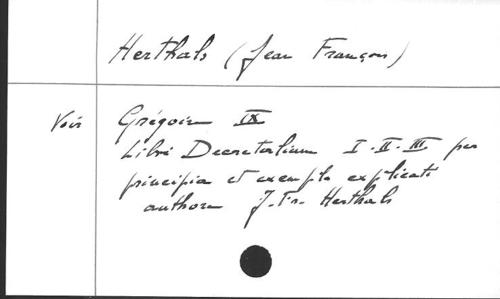 Herthals (Jean François)
Voir Grégoire IX
Libri Decretalium I-II-III per
principia et exempla explicati
authore J.-Fr. Herthals